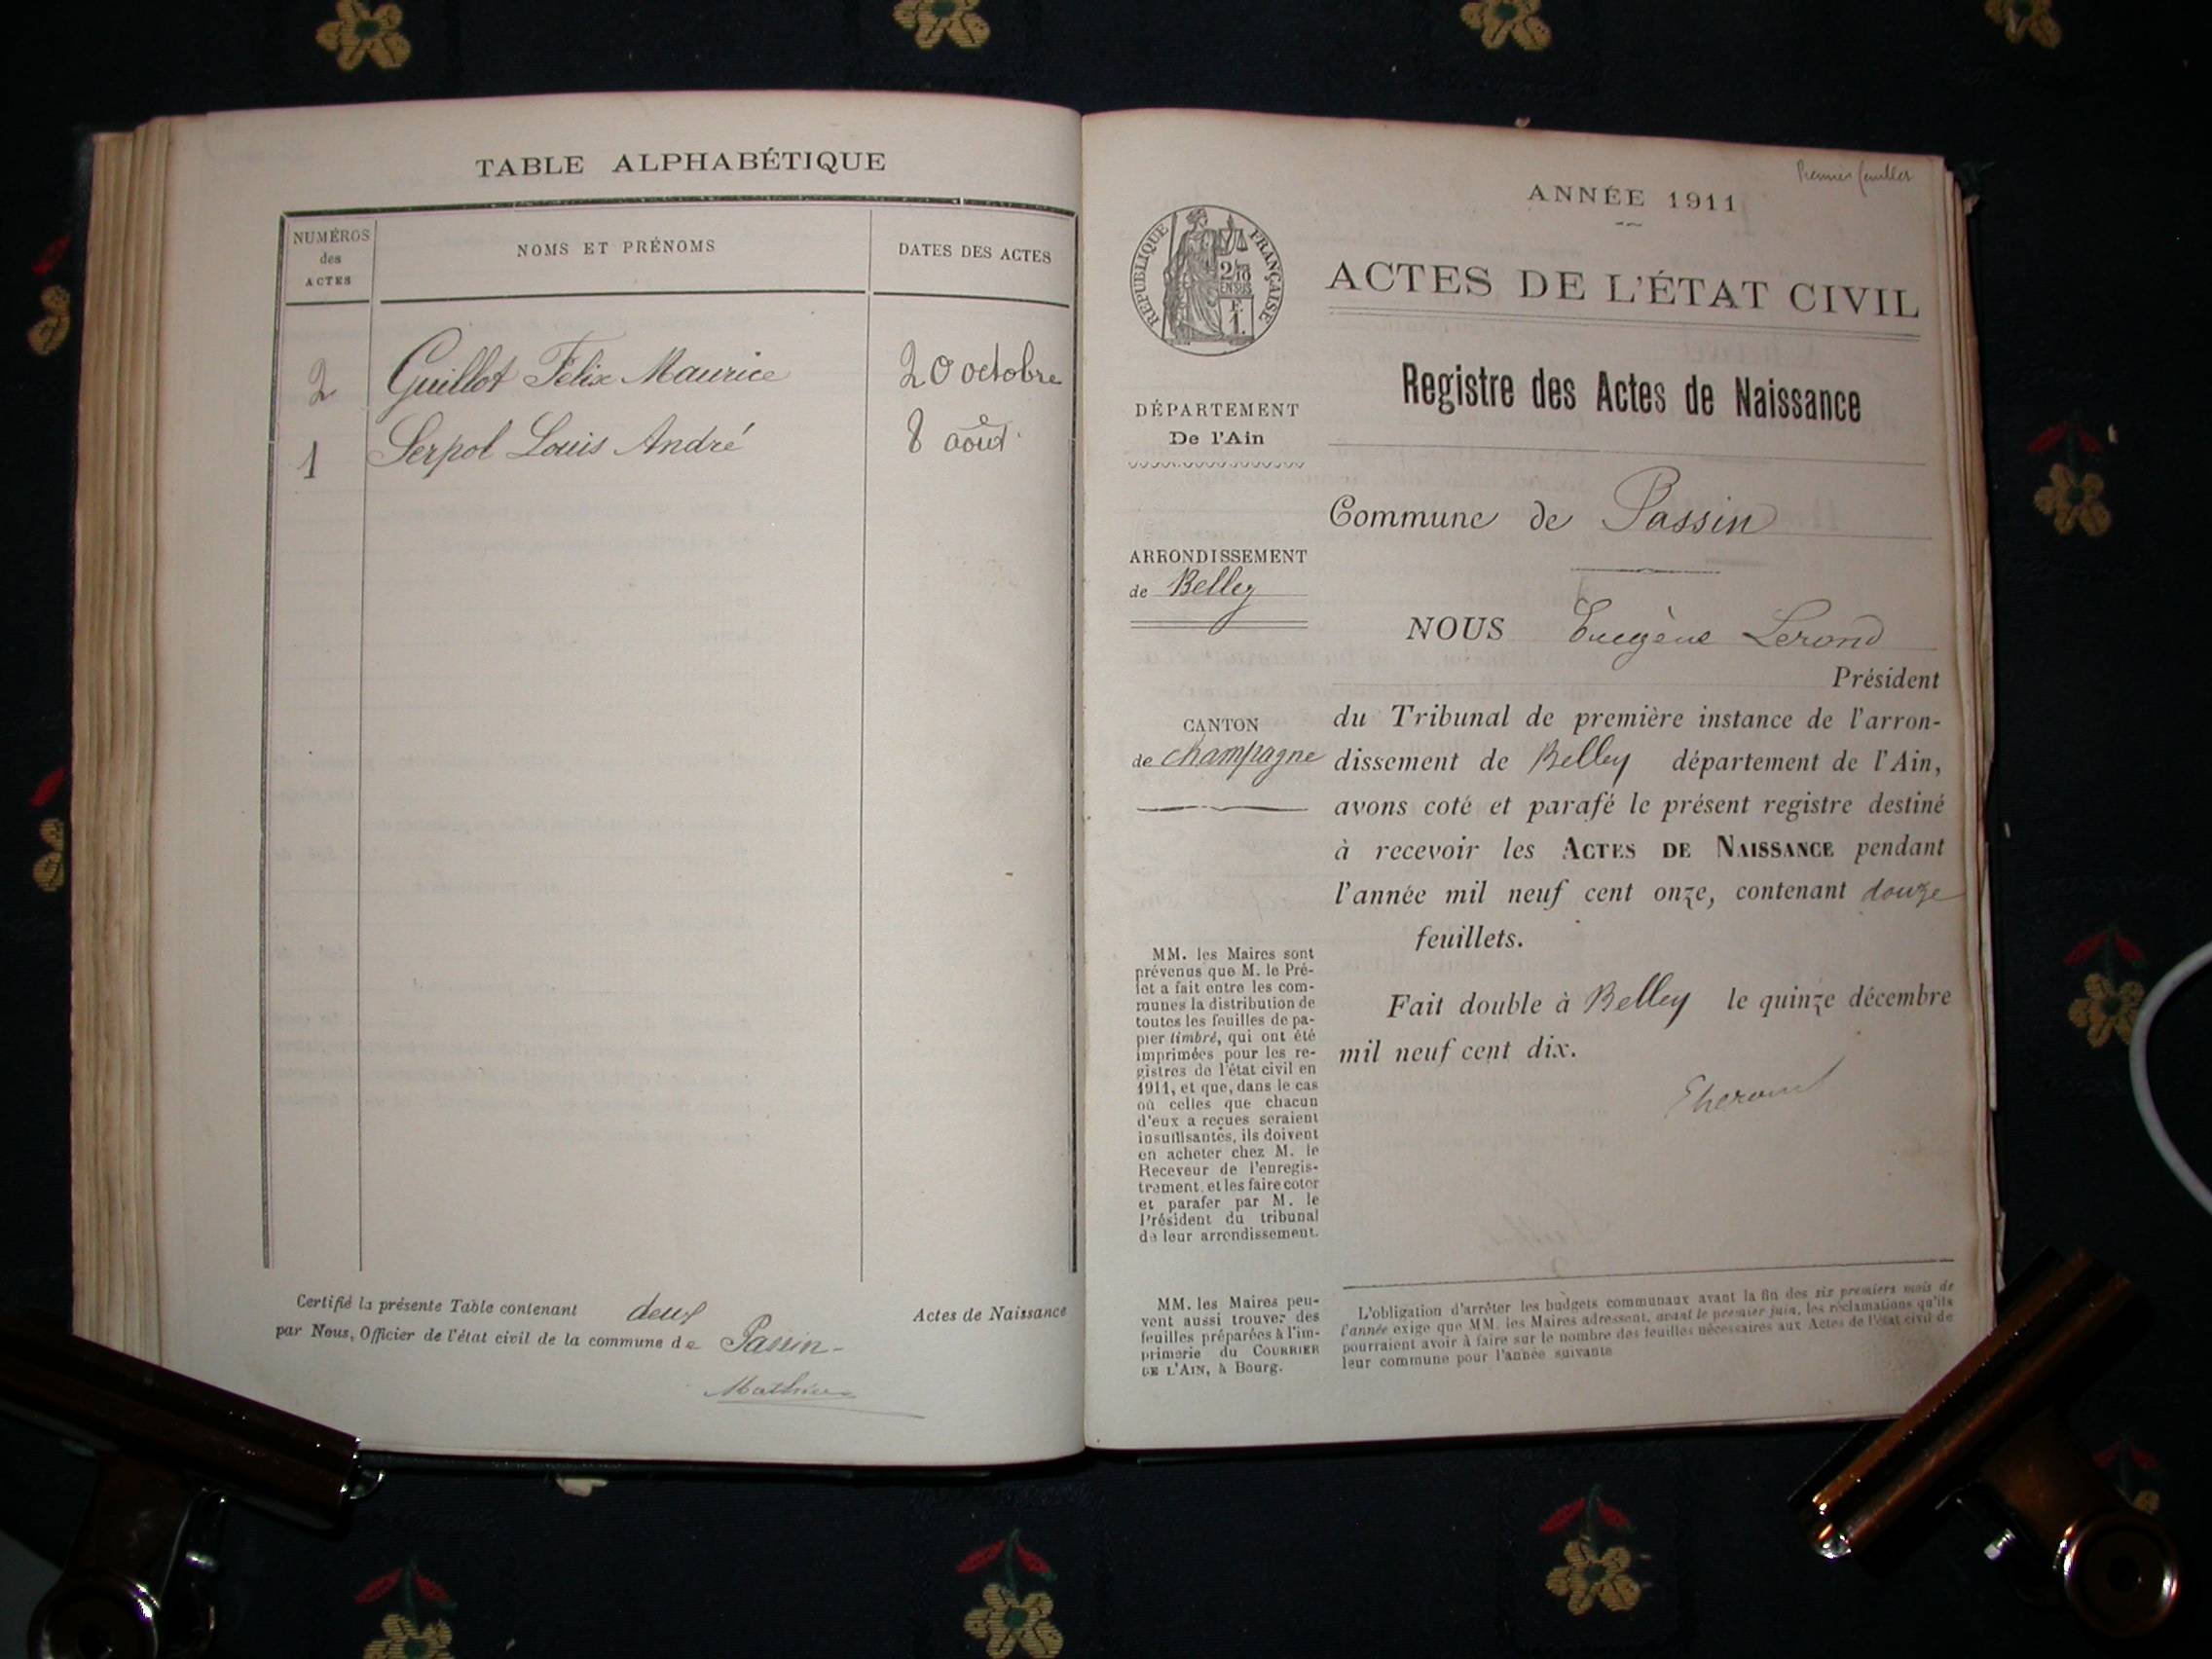 TABLE ALPHABÉTIQUE
NUMÉROS
des
ACTES
NOMS ET PRÉNOMS
DATES DES ACTES
2 Guillot Félix Maurice 20 octobre
1 Serpol Louis André 8 août
Certifié la présente Table contenant deux Actes de Naissance
par Nous, Officier de l'état civil de la commune de Passin-
Mathieu
Premier feuillet
ANNÉE 1911
RÉPUBLIQUE FRANÇAISE
2/10
EN SUS
ACTES DE L'ÉTAT CIVIL
Registre des Actes de Naissance
DÉPARTEMENT
De l'Ain
ARRONDISSEMENT
de Belley
CANTON
de Champagne
MM. les Maires sont
prévenus que M. le Pré-
fet a fait entre les com-
munes la distribution de
toutes les feuilles de pa-
pier timbré, qui ont été
imprimées pour les re-
gistres de l'état civil en
1911, et que, dans le cas
où celles que chacun
d'eux a reçues seraient
insuffisantes, ils doivent
en acheter chez M. le
Receveur de l'enregis-
trement, et les faire coter
et parafer par M. le
Président du tribunal
de leur arrondissement.
MM. les Maires peu-
vent aussi trouver des
feuilles préparées à l'im-
primerie du COURRIER
DE L'AIN, à Bourg.
Commune de Passin
NOUS Eugène Lerond
Président
du Tribunal de première instance de l'arron-
dissement de Belley département de l'Ain,
avons coté et parafé le présent registre destiné
à recevoir les ACTES DE NAISSANCE pendant
l'année mil neuf cent onze, contenant douze
feuillets.
Fait double à Belley le quinze décembre
mil neuf cent dix.
L'obligation d'arrêter les budgets communaux avant la fin des six premiers mois de
l'année exige que MM. les Maires adressent, avant le premier juin, les réclamations qu'ils
pourraient avoir à faire sur le nombre des feuilles nécessaires aux Actes de l'état civil de
leur commune pour l'année suivante